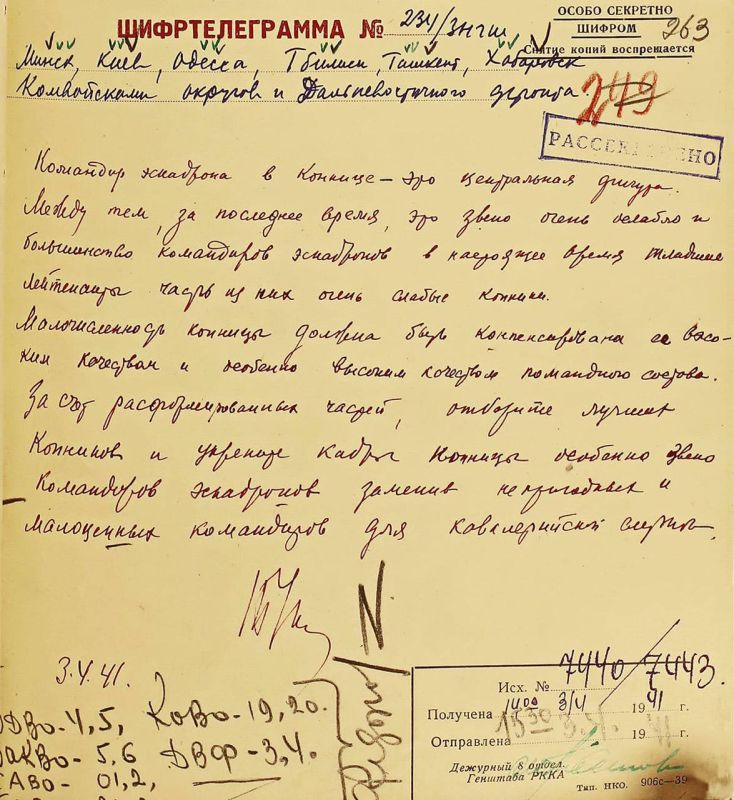 ОСОБО СЕКРЕТНО
ШИФРОМ
Снятие копий воспрещается
263
ШИФРТЕЛЕГРАММА № 234/знгш
Минск, Киев, Одесса, Тбилиси, Ташкент, Хабаровск
Комвойсками округов и Дальневосточного фронта.
249
РАССЕКРЕЧЕНО
Командир эскадрона в коннице – это центральная фигура.
Между тем, за последнее время, это звено очень ослабло и
большинство командиров эскадронов в настоящее время младшие
лейтенанты часть из них очень слабые конники.
Малочисленность конницы должна быть компенсирована ее высо-
ким качеством и особенно высоким качеством командного состава.
За счет расформированных частей, отберите лучших
конников и укрепите кадры конницы особенно звено
командиров эскадронов заменив непригодных и
малоценных командиров для кавалерийской службы.
3.4.41.
ОДВО - 4,5, КОВО - 19,20.
ЗАКВО - 5,6 ДВФ - 3,4.
САВО - 01,2,
Исх. № 7440/7443.
Получена 14 00 3/4 1941 г.
Отправлена 15 30 3.4. 1941 г.
Дежурный 8 отдел.
Генштаба РККА
Тип. НКО. 906с—39